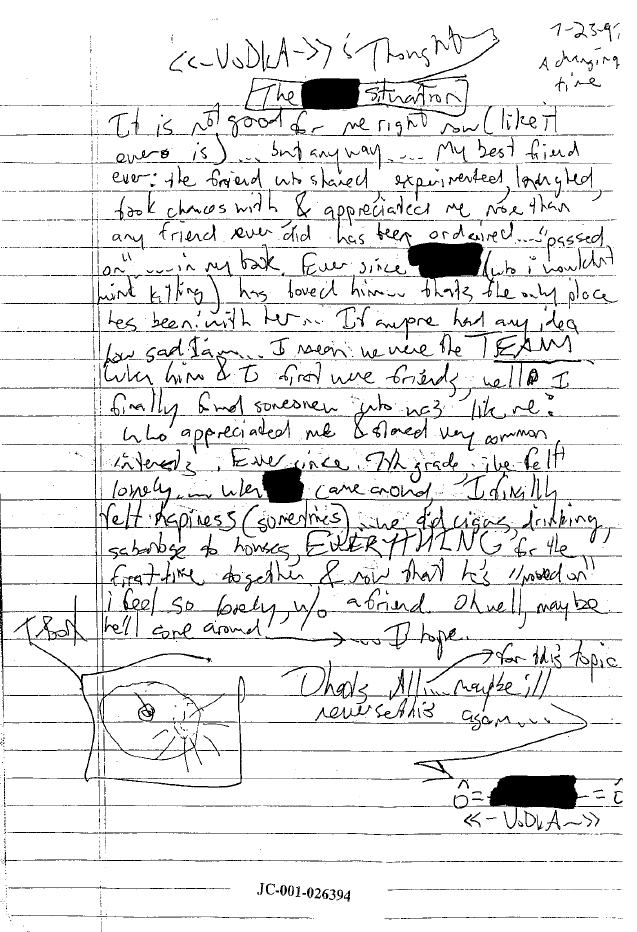 <<-VoDkA->>'s Thoughts
7-23-9
A changing
time
The Situation
It is not good for me right now (like it
ever is)... but anyway.... My best friend
ever: the friend who shared, experimented, laughed,
took chances with & appreciated me more than
any friend ever did has been ordained... "passed
on"..... in my book. Ever since (who i wouldn't
mind killing) has loved him... thats the only place
hes been: with her... If anyone had any idea
how sad I am... I mean we were the TEAM
When him & I first were friends, well I
finally found someone who was like me:
who appreciated me & shared very common
interests. Ever since 7th grade, ive felt
lonely... when came around, I finally
felt happiness (sometimes)... we did cigars, drinking,
sabotage to houses, EVERYTHING for the
first time together & now that he's "moved on"
i feel so lonely, w/o a friend. Oh well, maybe
he'll come around ... I hope.
for this topic
Thats All... maybe ill
again....
ô= = 
<<-VoDkA->>
JC-001-026394